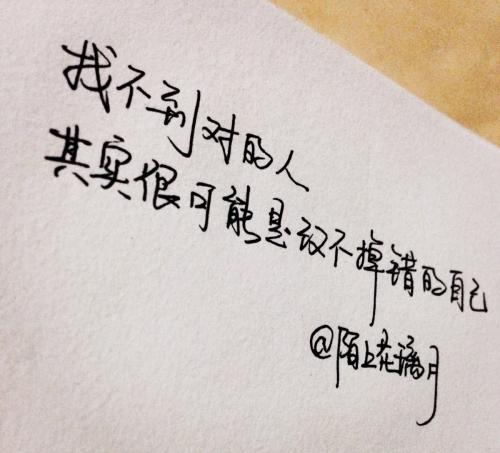 找不到对的人
其实很可能是改不掉错的自己
@陌上花璃月